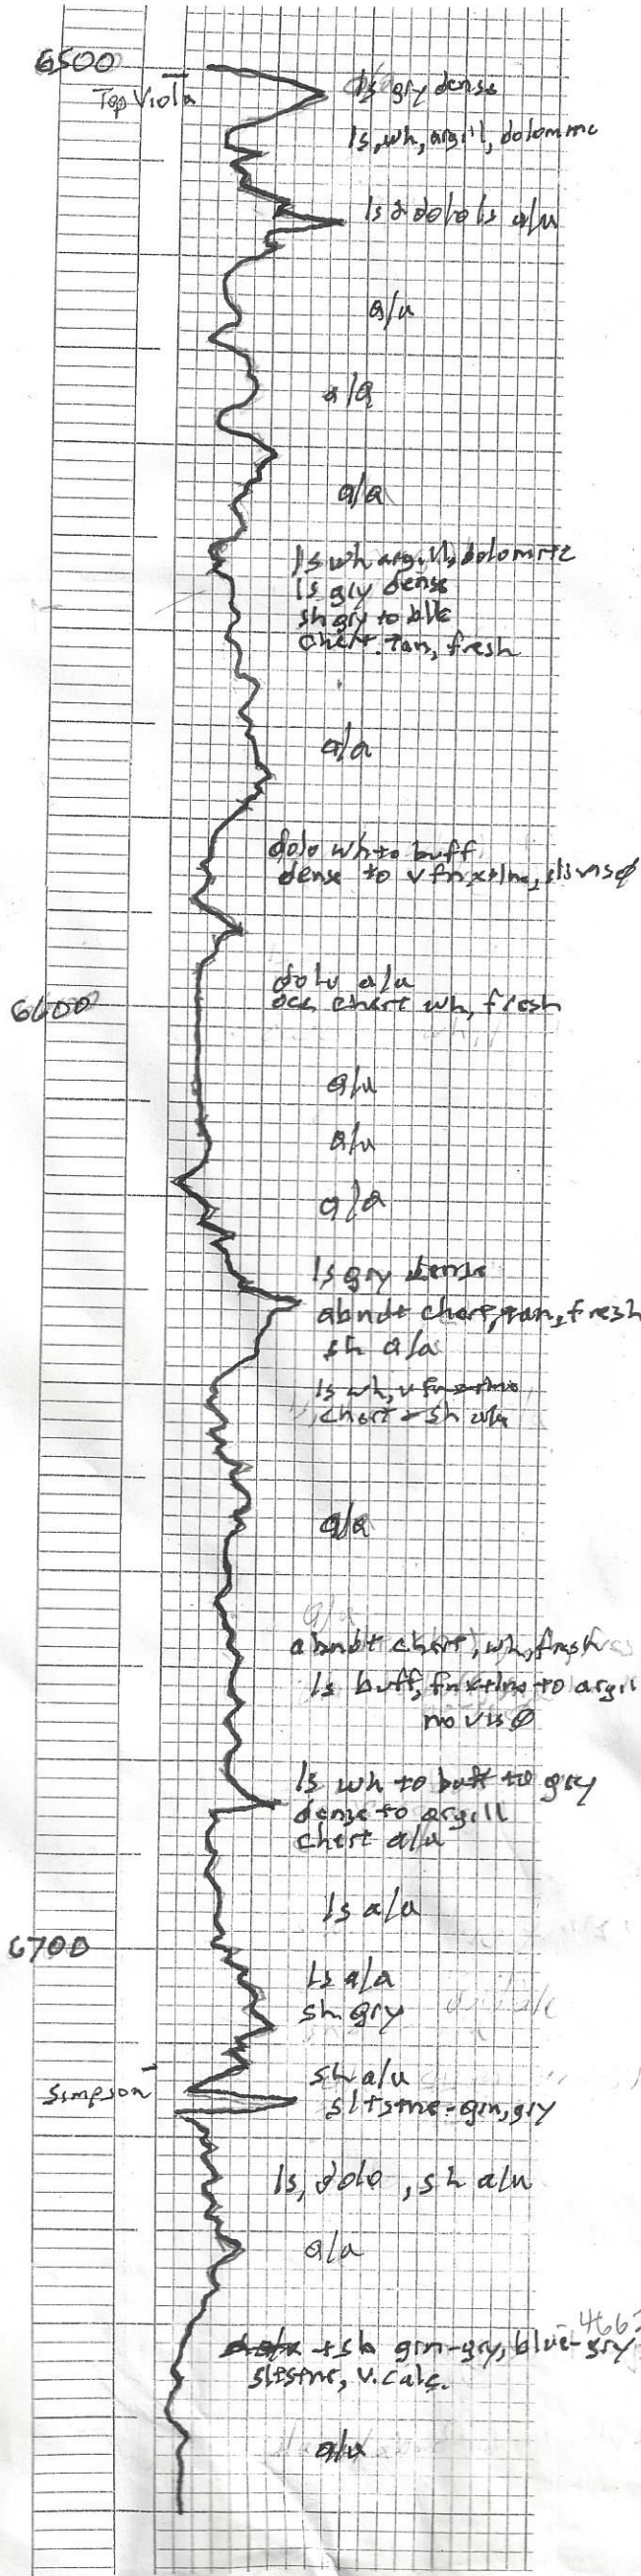 6500
Top Viola
ls gry dense
ls, wh, argill, dolomitic
ls & dolo ls a/a
a/a
a/a
a/a
ls wh argill, dolomitic
ls gry dense
sh gry to blk
chert, tan, fresh
a/a
dolo wh to buff
dense to vfnxtlne, sl vis ϕ
dolo a/a
6600
occ chert wh, fresh
a/a
a/a
a/a
ls gry dense
abndt chert, tan, fresh
sh a/a
ls wh, vfnxtlne
chert & sh a/a
a/a
a/a
abndt chert, wh, fresh
ls buff, fnxtlne to argill
no vis ϕ
ls wh to buff to gry
dense to argill
chert a/a
ls a/a
6700
ls a/a
sh gry
sh a/a
Simpson
sltstne - grn, gry
ls, dolo, sh a/a
a/a
466
sh grn-gry, blue-gry
sltstne, v. calc.
a/a